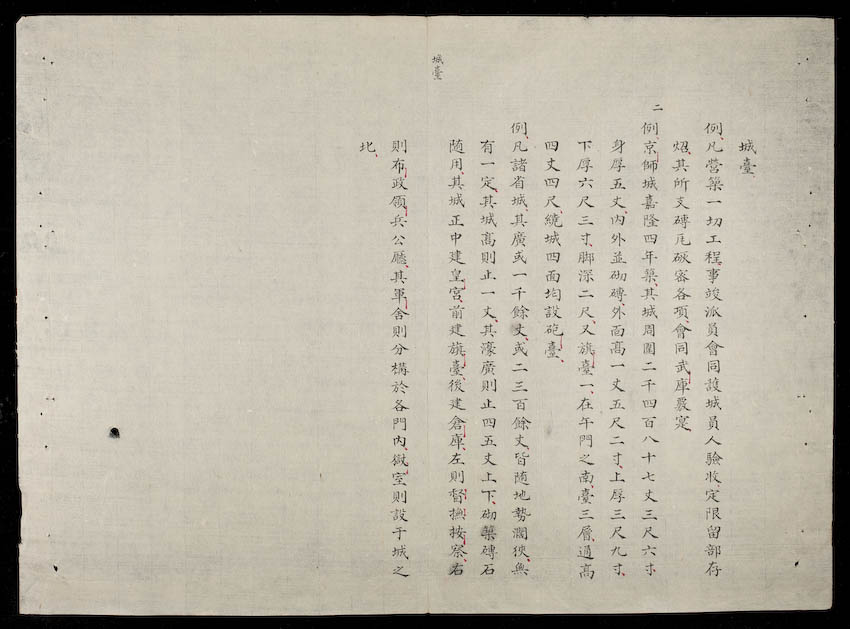 城臺
城臺
例凡營築一切工程事竣派員會同護城員人驗收定限留部存
炤其所支磚瓦碳窑各項會同武庫覈寔
二
例京師城嘉隆四年築其城周圍二千四百八十七丈三尺六寸
身厚五丈内外並砌磚外面髙一丈五尺二寸上厚三尺九寸
下厚六尺三寸脚深二尺又旗臺一在午門之南臺三層通髙
四丈四尺繞城四面均設砲臺
例凡諸省城其廣或一千餘丈或二三百餘丈皆隨地勢濶狹無
有一定其城髙則止一丈其濠廣則止四五丈上下砌築磚石
随用其城正中建皇宮前建旗臺後建倉庫左則督撫按察右
則布政領兵公廳其軍舍則分構於各門内獄室則設于城之
北